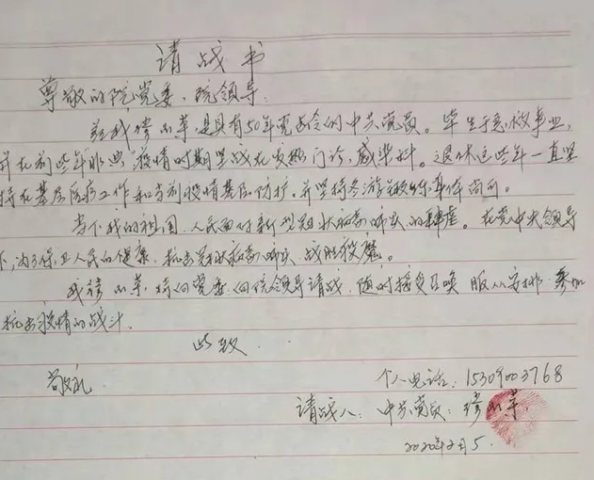 请战书
尊敬的院党委、院领导:
我 是具有50年党龄的中共党员。毕生于急救事业,
并在前些年非典疫情时期坚战在发热门诊、感染科。退休这些年一直坚
持在基层医疗工作和 疫情基层防护,并坚持冬游 身体尚可。
当下我的祖国、人民面对新型冠状病毒肺炎的肆虐。在党中央领导
下,为了保卫人民的健康,抗击冠状病毒肺炎、战胜疫魔。
我 将向党委、向院领导请战,随时接受召唤 服从安排 参加
抗击疫情的战斗。
此致
敬礼
个人电话:15309003768
请战人:中共党员:
2020年2月5.